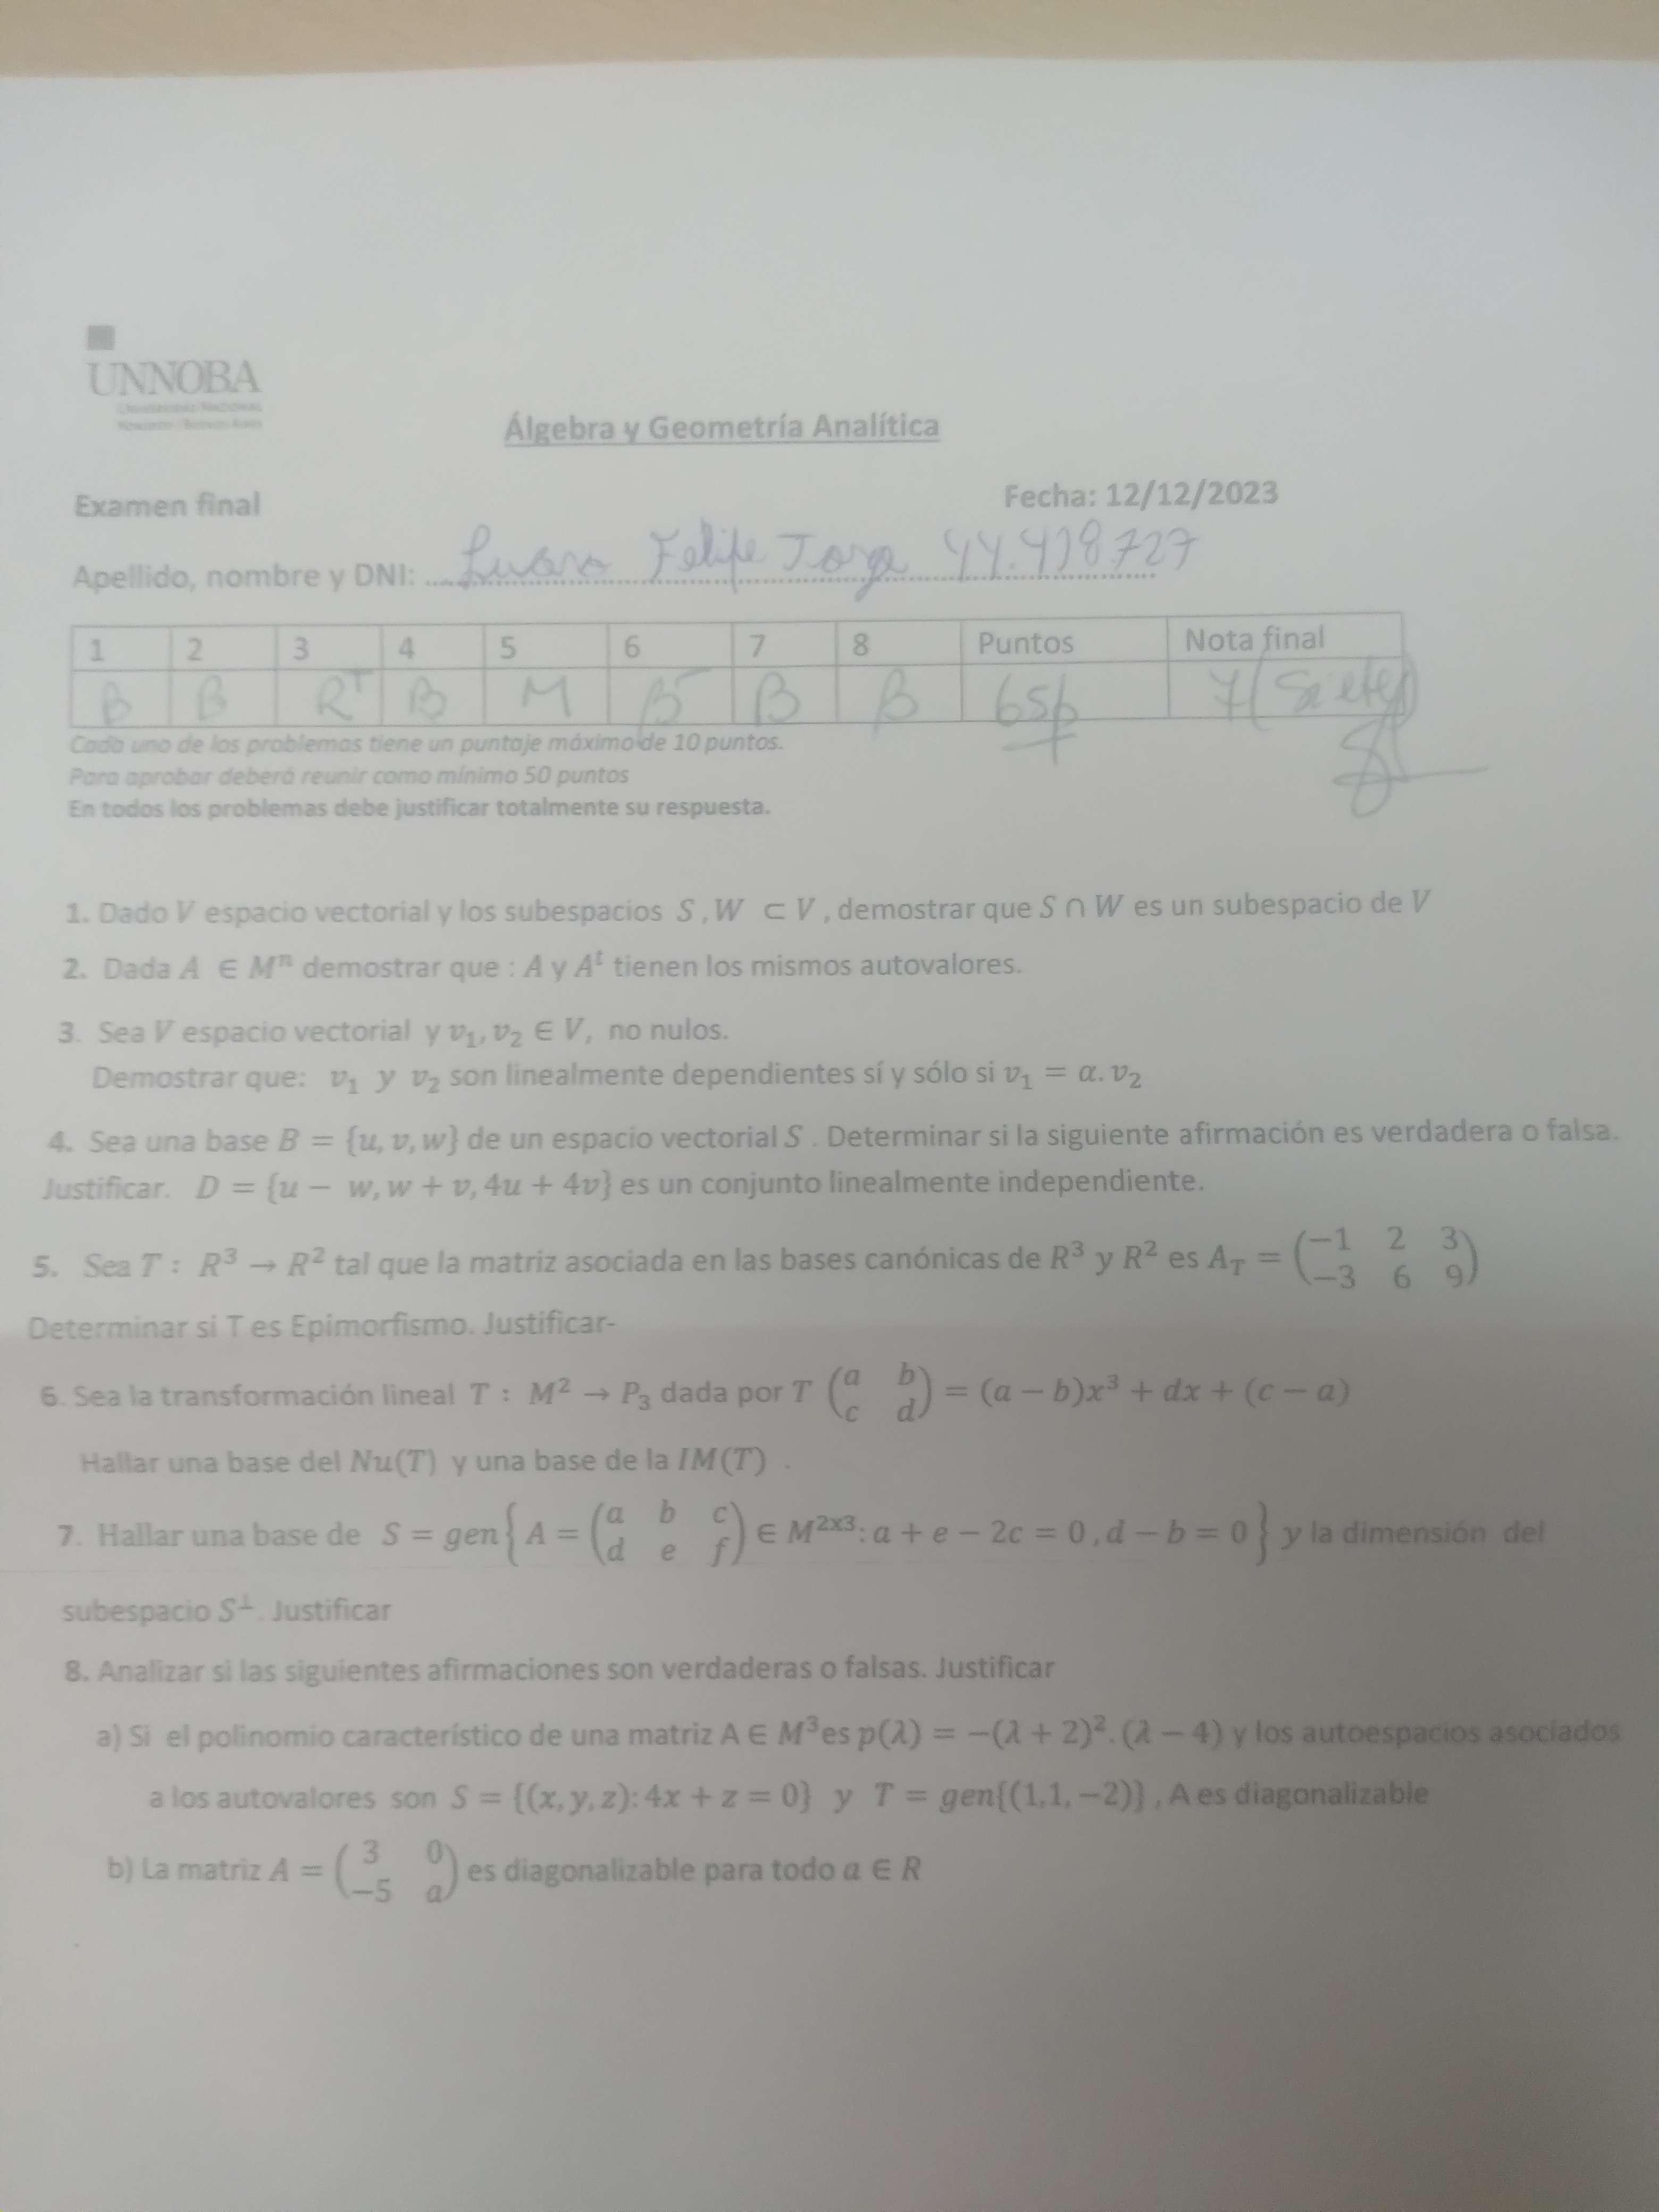 UNNOBA
Universidad Nacional
Noroeste • Buenos Aires
Álgebra y Geometría Analítica
Examen final
Fecha: 12/12/2023
Apellido, nombre y DNI: Felipe Jorge 44.418727
1 2 3 4 5 6 7 8 Puntos Nota final
B B R+ B M B- B B 65p 7 (Siete)
Cada uno de los problemas tiene un puntaje máximo de 10 puntos.
Para aprobar deberá reunir como mínimo 50 puntos
En todos los problemas debe justificar totalmente su respuesta.
1. Dado V espacio vectorial y los subespacios S , W ⊂ V , demostrar que S ∩ W es un subespacio de V
2. Dada A ∈ Mⁿ demostrar que : A y Aᵗ tienen los mismos autovalores.
3. Sea V espacio vectorial y v₁, v₂ ∈ V, no nulos.
Demostrar que: v₁ y v₂ son linealmente dependientes sí y sólo si v₁ = α. v₂
4. Sea una base B = {u, v, w} de un espacio vectorial S . Determinar si la siguiente afirmación es verdadera o falsa.
Justificar. D = {u − w, w + v, 4u + 4v} es un conjunto linealmente independiente.
5. Sea T : R³ → R² tal que la matriz asociada en las bases canónicas de R³ y R² es A_T = (−1 2 3
−3 6 9)
Determinar si T es Epimorfismo. Justificar-
6. Sea la transformación lineal T : M² → P₃ dada por T (a b
c d) = (a − b)x³ + dx + (c − a)
Hallar una base del Nu(T) y una base de la IM(T) .
7. Hallar una base de S = gen{ A = (a b c
d e f) ∈ M²ˣ³: a + e − 2c = 0 , d − b = 0 } y la dimensión del
subespacio S⊥. Justificar
8. Analizar si las siguientes afirmaciones son verdaderas o falsas. Justificar
a) Si el polinomio característico de una matriz A ∈ M³es p(λ) = −(λ + 2)². (λ − 4) y los autoespacios asociados
a los autovalores son S = {(x, y, z): 4x + z = 0} y T = gen{(1,1, −2)} , A es diagonalizable
b) La matriz A = (3 0
−5 a) es diagonalizable para todo a ∈ R